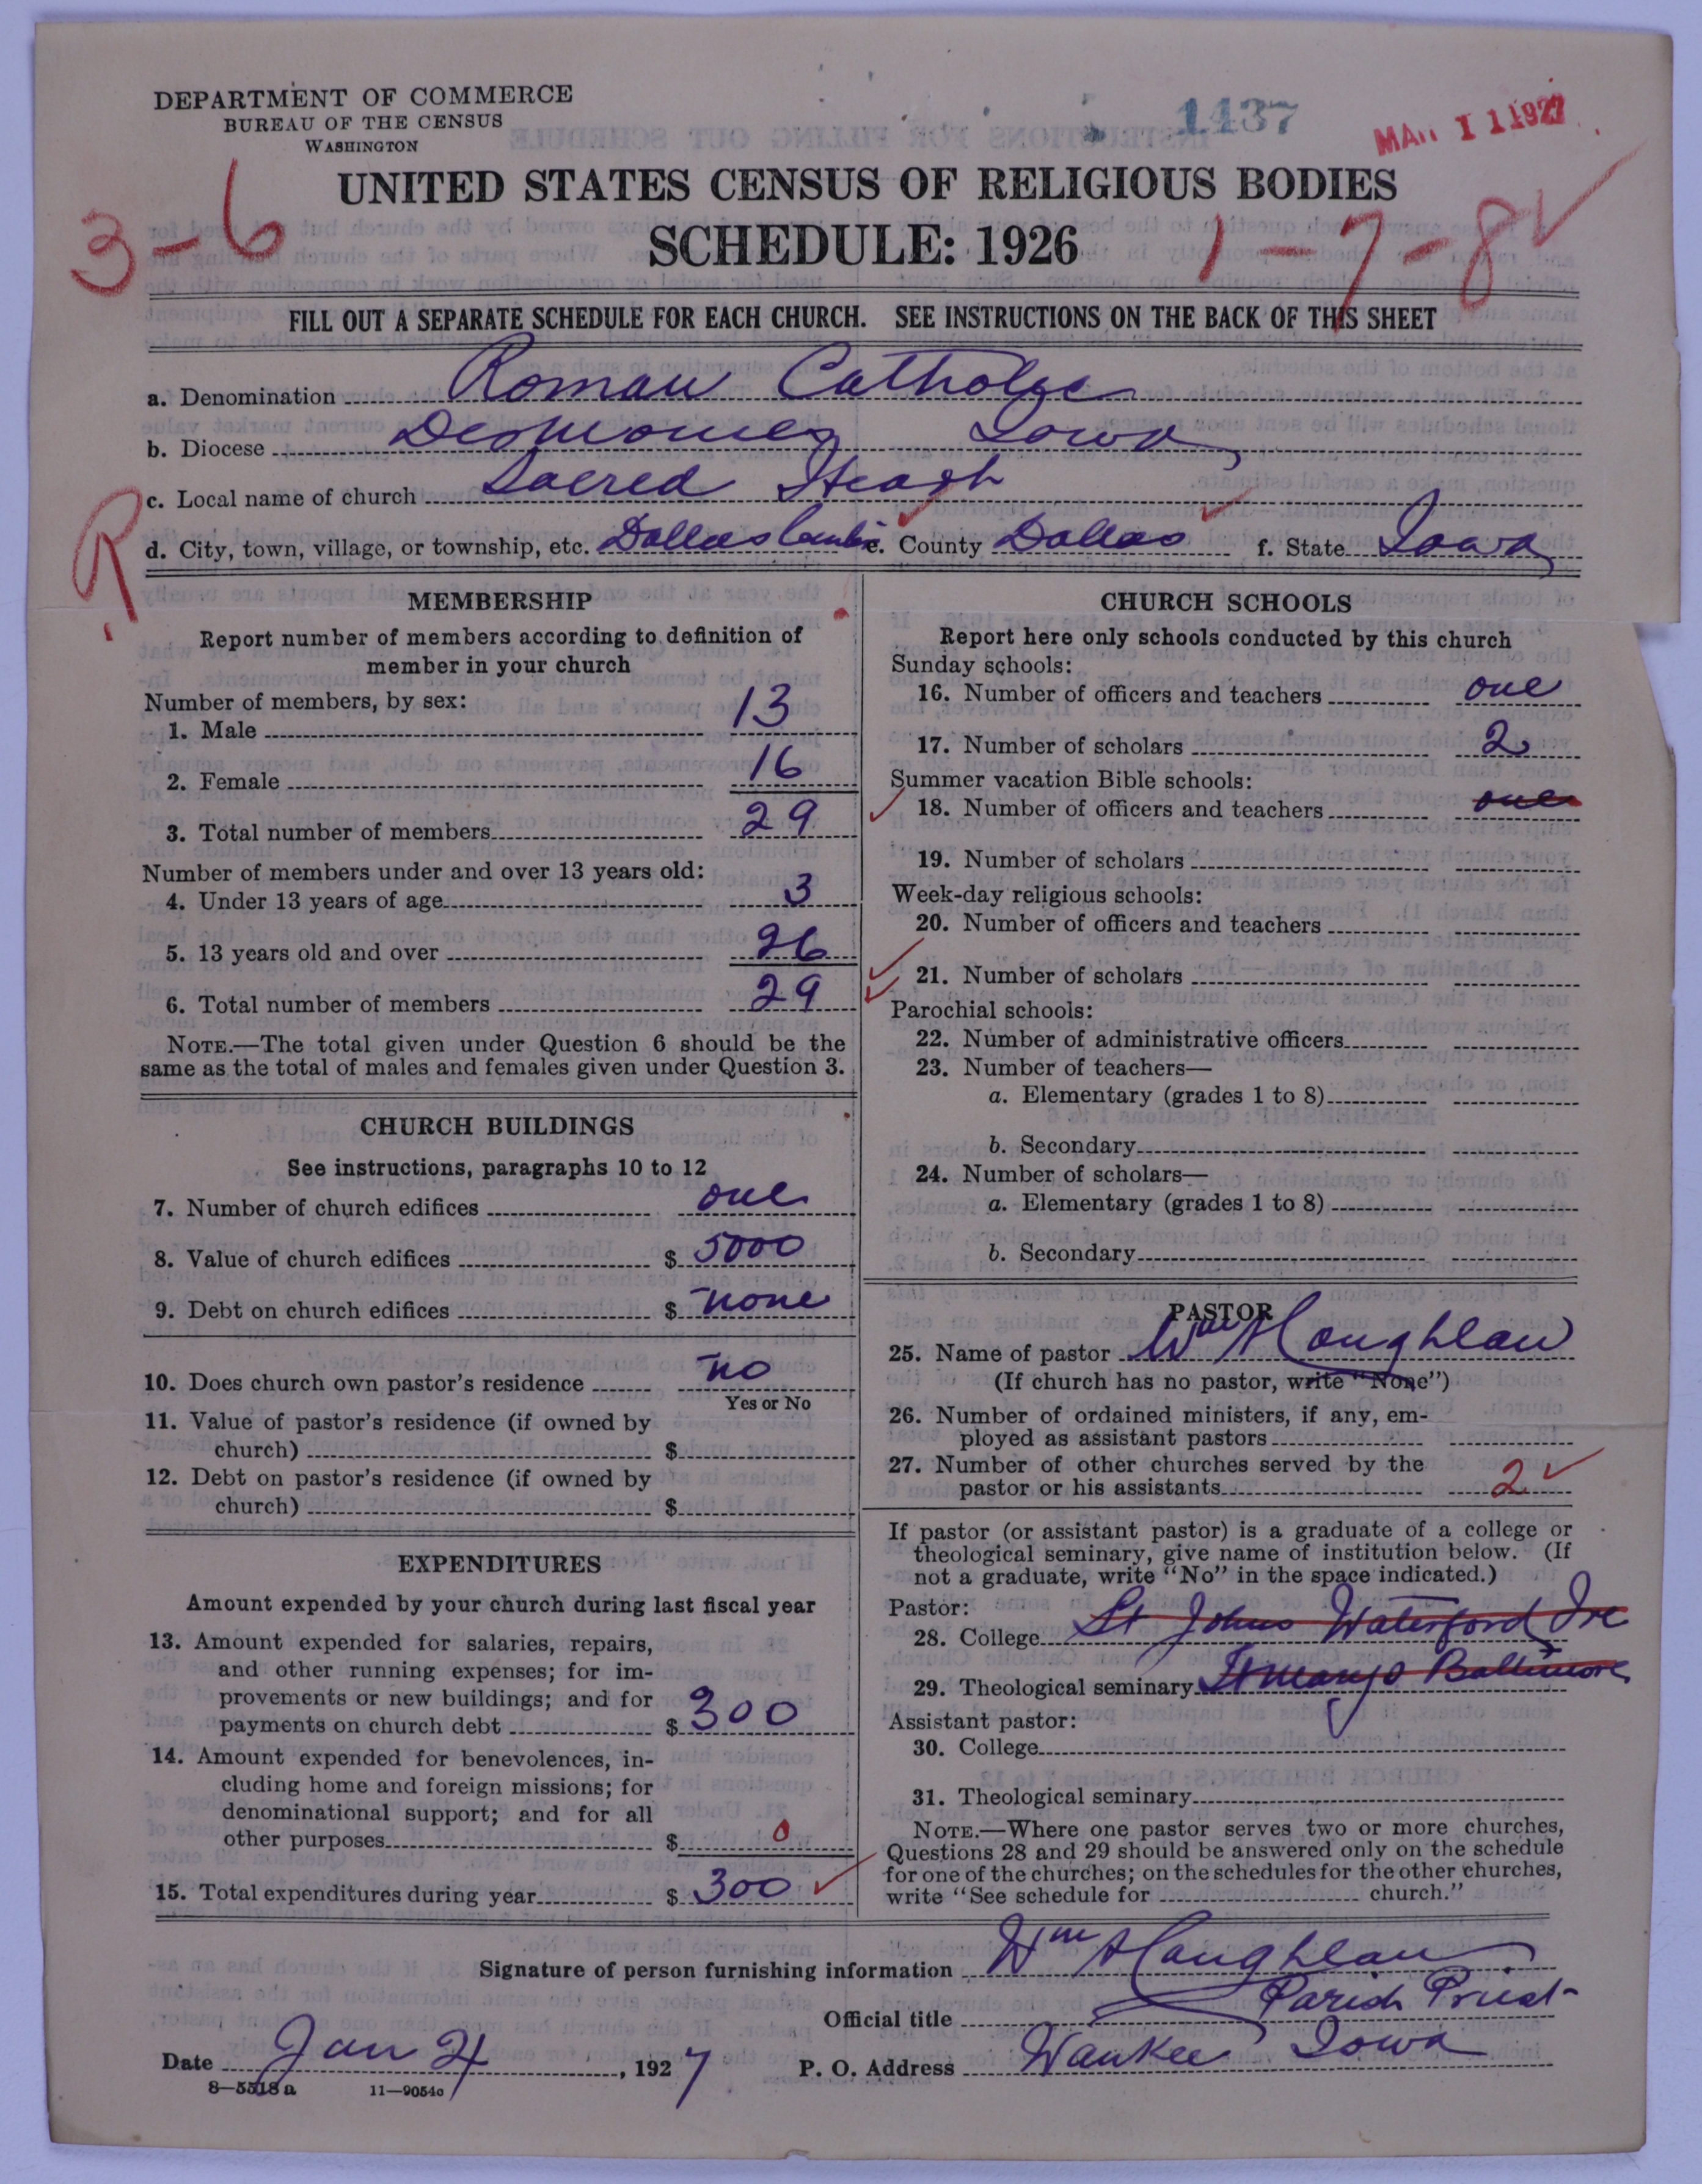 DEPARTMENT OF COMMERCE
BUREAU OF THE CENSUS
WASHINGTON
1437
MAR 11 1927
UNITED STATES CENSUS OF RELIGIOUS BODIES
3-6
SCHEDULE: 1926
1-7-8
FILL OUT A SEPARATE SCHEDULE FOR EACH CHURCH. SEE INSTRUCTIONS ON THE BACK OF THIS SHEET
a. Denomination Roman Catholic
b. Diocese Desmoines Iowa
c. Local name of church Sacred Heart
R
d. City, town, village, or township, etc. Dallas e. County Dallas f. State Iowa
MEMBERSHIP
Report number of members according to definition of
member in your church
Number of members, by sex:
1. Male 13
2. Female 16
3. Total number of members 29
Number of members under and over 13 years old:
4. Under 13 years of age 3
5. 13 years old and over 26
6. Total number of members 29
NOTE.—The total given under Question 6 should be the
same as the total of males and females given under Question 3.
CHURCH BUILDINGS
See instructions, paragraphs 10 to 12
7. Number of church edifices one
8. Value of church edifices $ 5000
9. Debt on church edifices $ none
10. Does church own pastor's residence no
Yes or No
11. Value of pastor's residence (if owned by
church) $
12. Debt on pastor's residence (if owned by
church) $
EXPENDITURES
Amount expended by your church during last fiscal year
13. Amount expended for salaries, repairs,
and other running expenses; for im-
provements or new buildings; and for
payments on church debt $ 300
14. Amount expended for benevolences, in-
cluding home and foreign missions; for
denominational support; and for all
other purposes $ 0
15. Total expenditures during year $ 300
CHURCH SCHOOLS
Report here only schools conducted by this church
Sunday schools:
16. Number of officers and teachers one
17. Number of scholars 2
Summer vacation Bible schools:
18. Number of officers and teachers one
19. Number of scholars
Week-day religious schools:
20. Number of officers and teachers
21. Number of scholars
Parochial schools:
22. Number of administrative officers
23. Number of teachers—
a. Elementary (grades 1 to 8)
b. Secondary
24. Number of scholars—
a. Elementary (grades 1 to 8)
b. Secondary
PASTOR
25. Name of pastor Wm H Coughlan
(If church has no pastor, write "None")
26. Number of ordained ministers, if any, em-
ployed as assistant pastors
27. Number of other churches served by the
pastor or his assistants 2
If pastor (or assistant pastor) is a graduate of a college or
theological seminary, give name of institution below. (If
not a graduate, write "No" in the space indicated.)
Pastor:
28. College St Johns Waterford Ire
29. Theological seminary St Marys Baltimore
Assistant pastor:
30. College
31. Theological seminary
NOTE.—Where one pastor serves two or more churches,
Questions 28 and 29 should be answered only on the schedule
for one of the churches; on the schedules for the other churches,
write "See schedule for church."
Signature of person furnishing information Wm H Coughlan
Official title Parish Priest
Date Jan 4, 1927 P. O. Address Waukee Iowa
8—5518 a 11—9054c